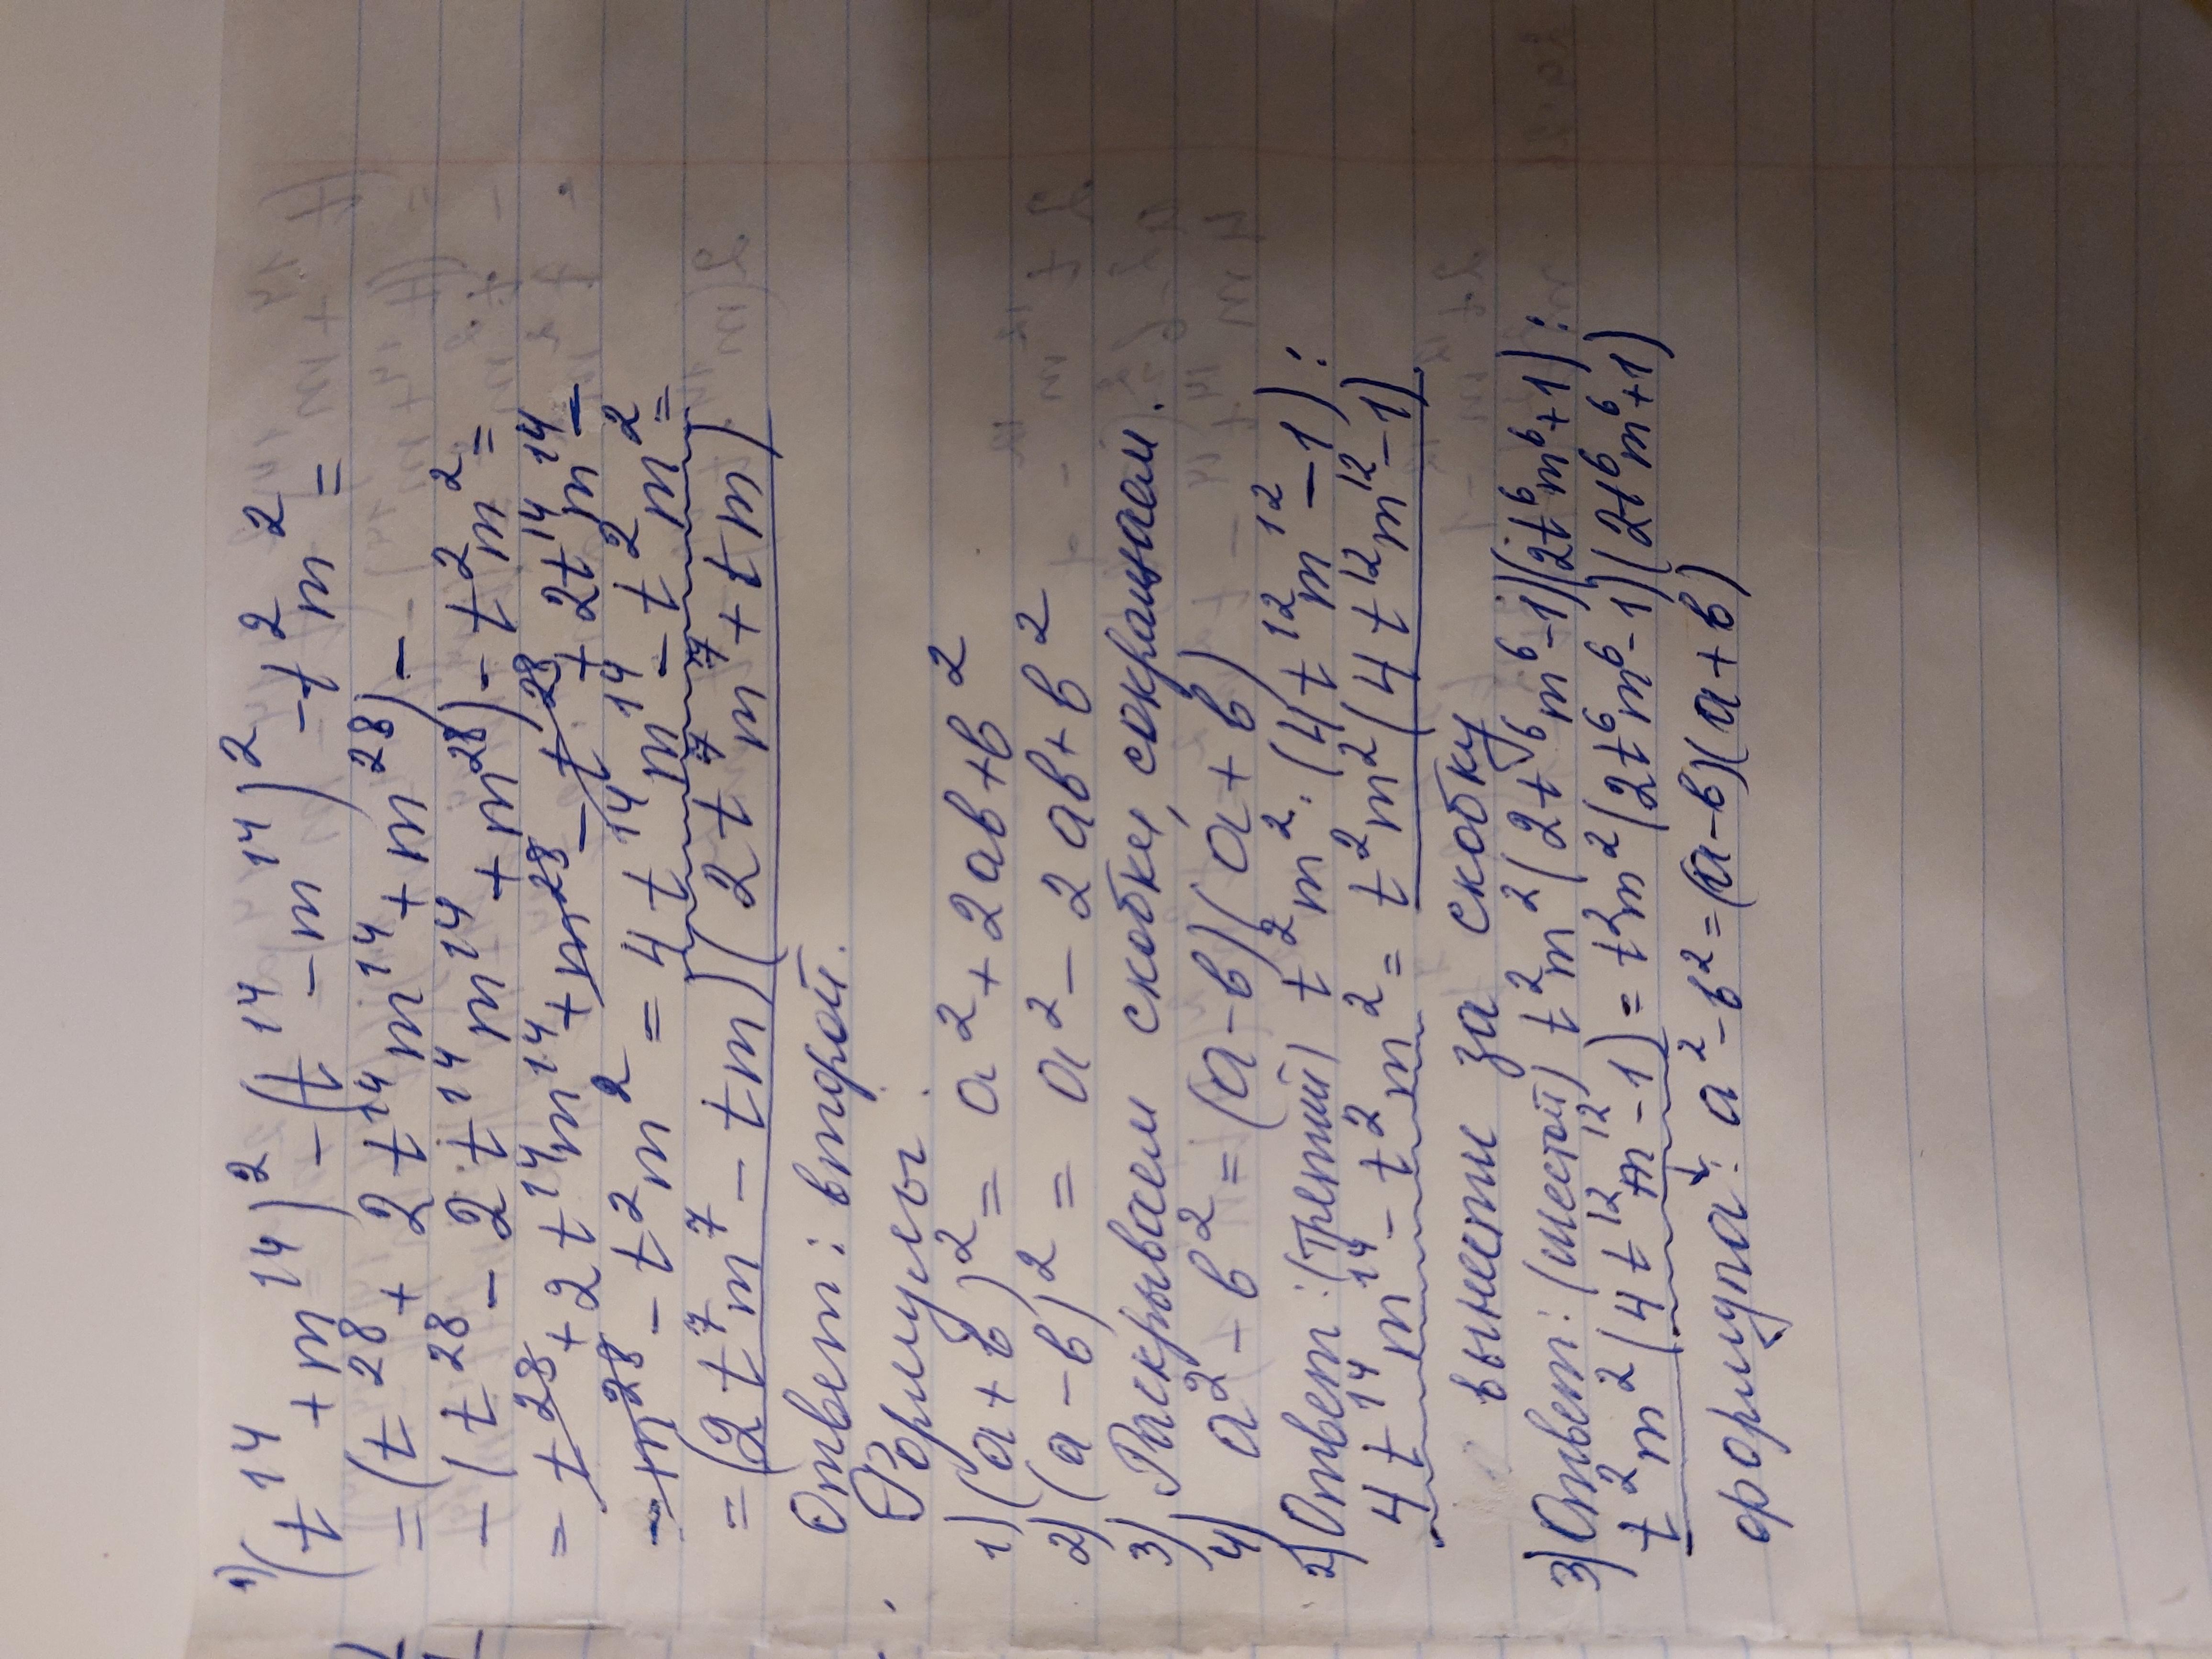 1) (t¹⁴ + m¹⁴)² - (t¹⁴ - m¹⁴)² - t²m² =
= (t²⁸ + 2t¹⁴m¹⁴ + m²⁸) -
- (t²⁸ - 2t¹⁴m¹⁴ + m²⁸) - t²m² =
= t²⁸ + 2t¹⁴m¹⁴ + m²⁸ - t²⁸ + 2t¹⁴m¹⁴ -
- m²⁸ - t²m² = 4t¹⁴m¹⁴ - t²m² =
= (2t⁷m⁷ - tm)(2t⁷m⁷ + tm)
Ответ: второй.
Формулы.
1) (a + b)² = a² + 2ab + b²
2) (a - b)² = a² - 2ab + b²
3) Раскрываем скобки, сокращаем.
4) a² - b² = (a - b)(a + b)
2) Ответ: (третий) t²m² · (4t¹²m¹² - 1) :
4t¹⁴m¹⁴ - t²m² = t²m²(4t¹²m¹² - 1)
вынести за скобку
3) Ответ: (шестой) t²m²(2t⁶m⁶ - 1)(2t⁶m⁶ + 1) :
t²m²(4t¹²m¹² - 1) = t²m²(2t⁶m⁶ - 1)(2t⁶m⁶ + 1)
формула: a² - b² = (a - b)(a + b)